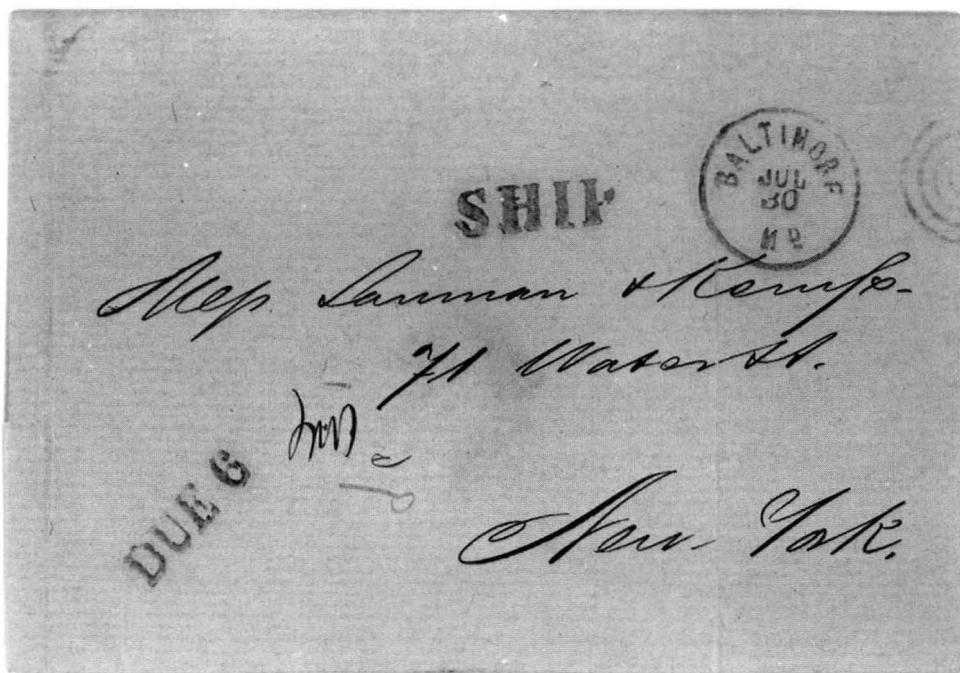 BALTIMORE
JUL
30
Md
SHIP
Mess Lanman & Kemp-
71 Water St.
DUE 6
New York.